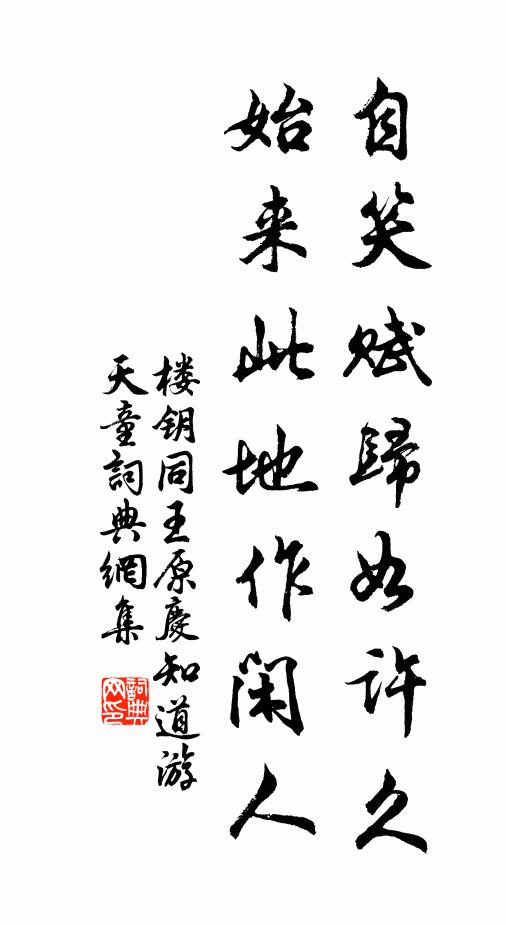 自笑赋歸如许久
始来此地作閑人
楼钥同王原慶知道游
天童詞典網集
詞典
网印